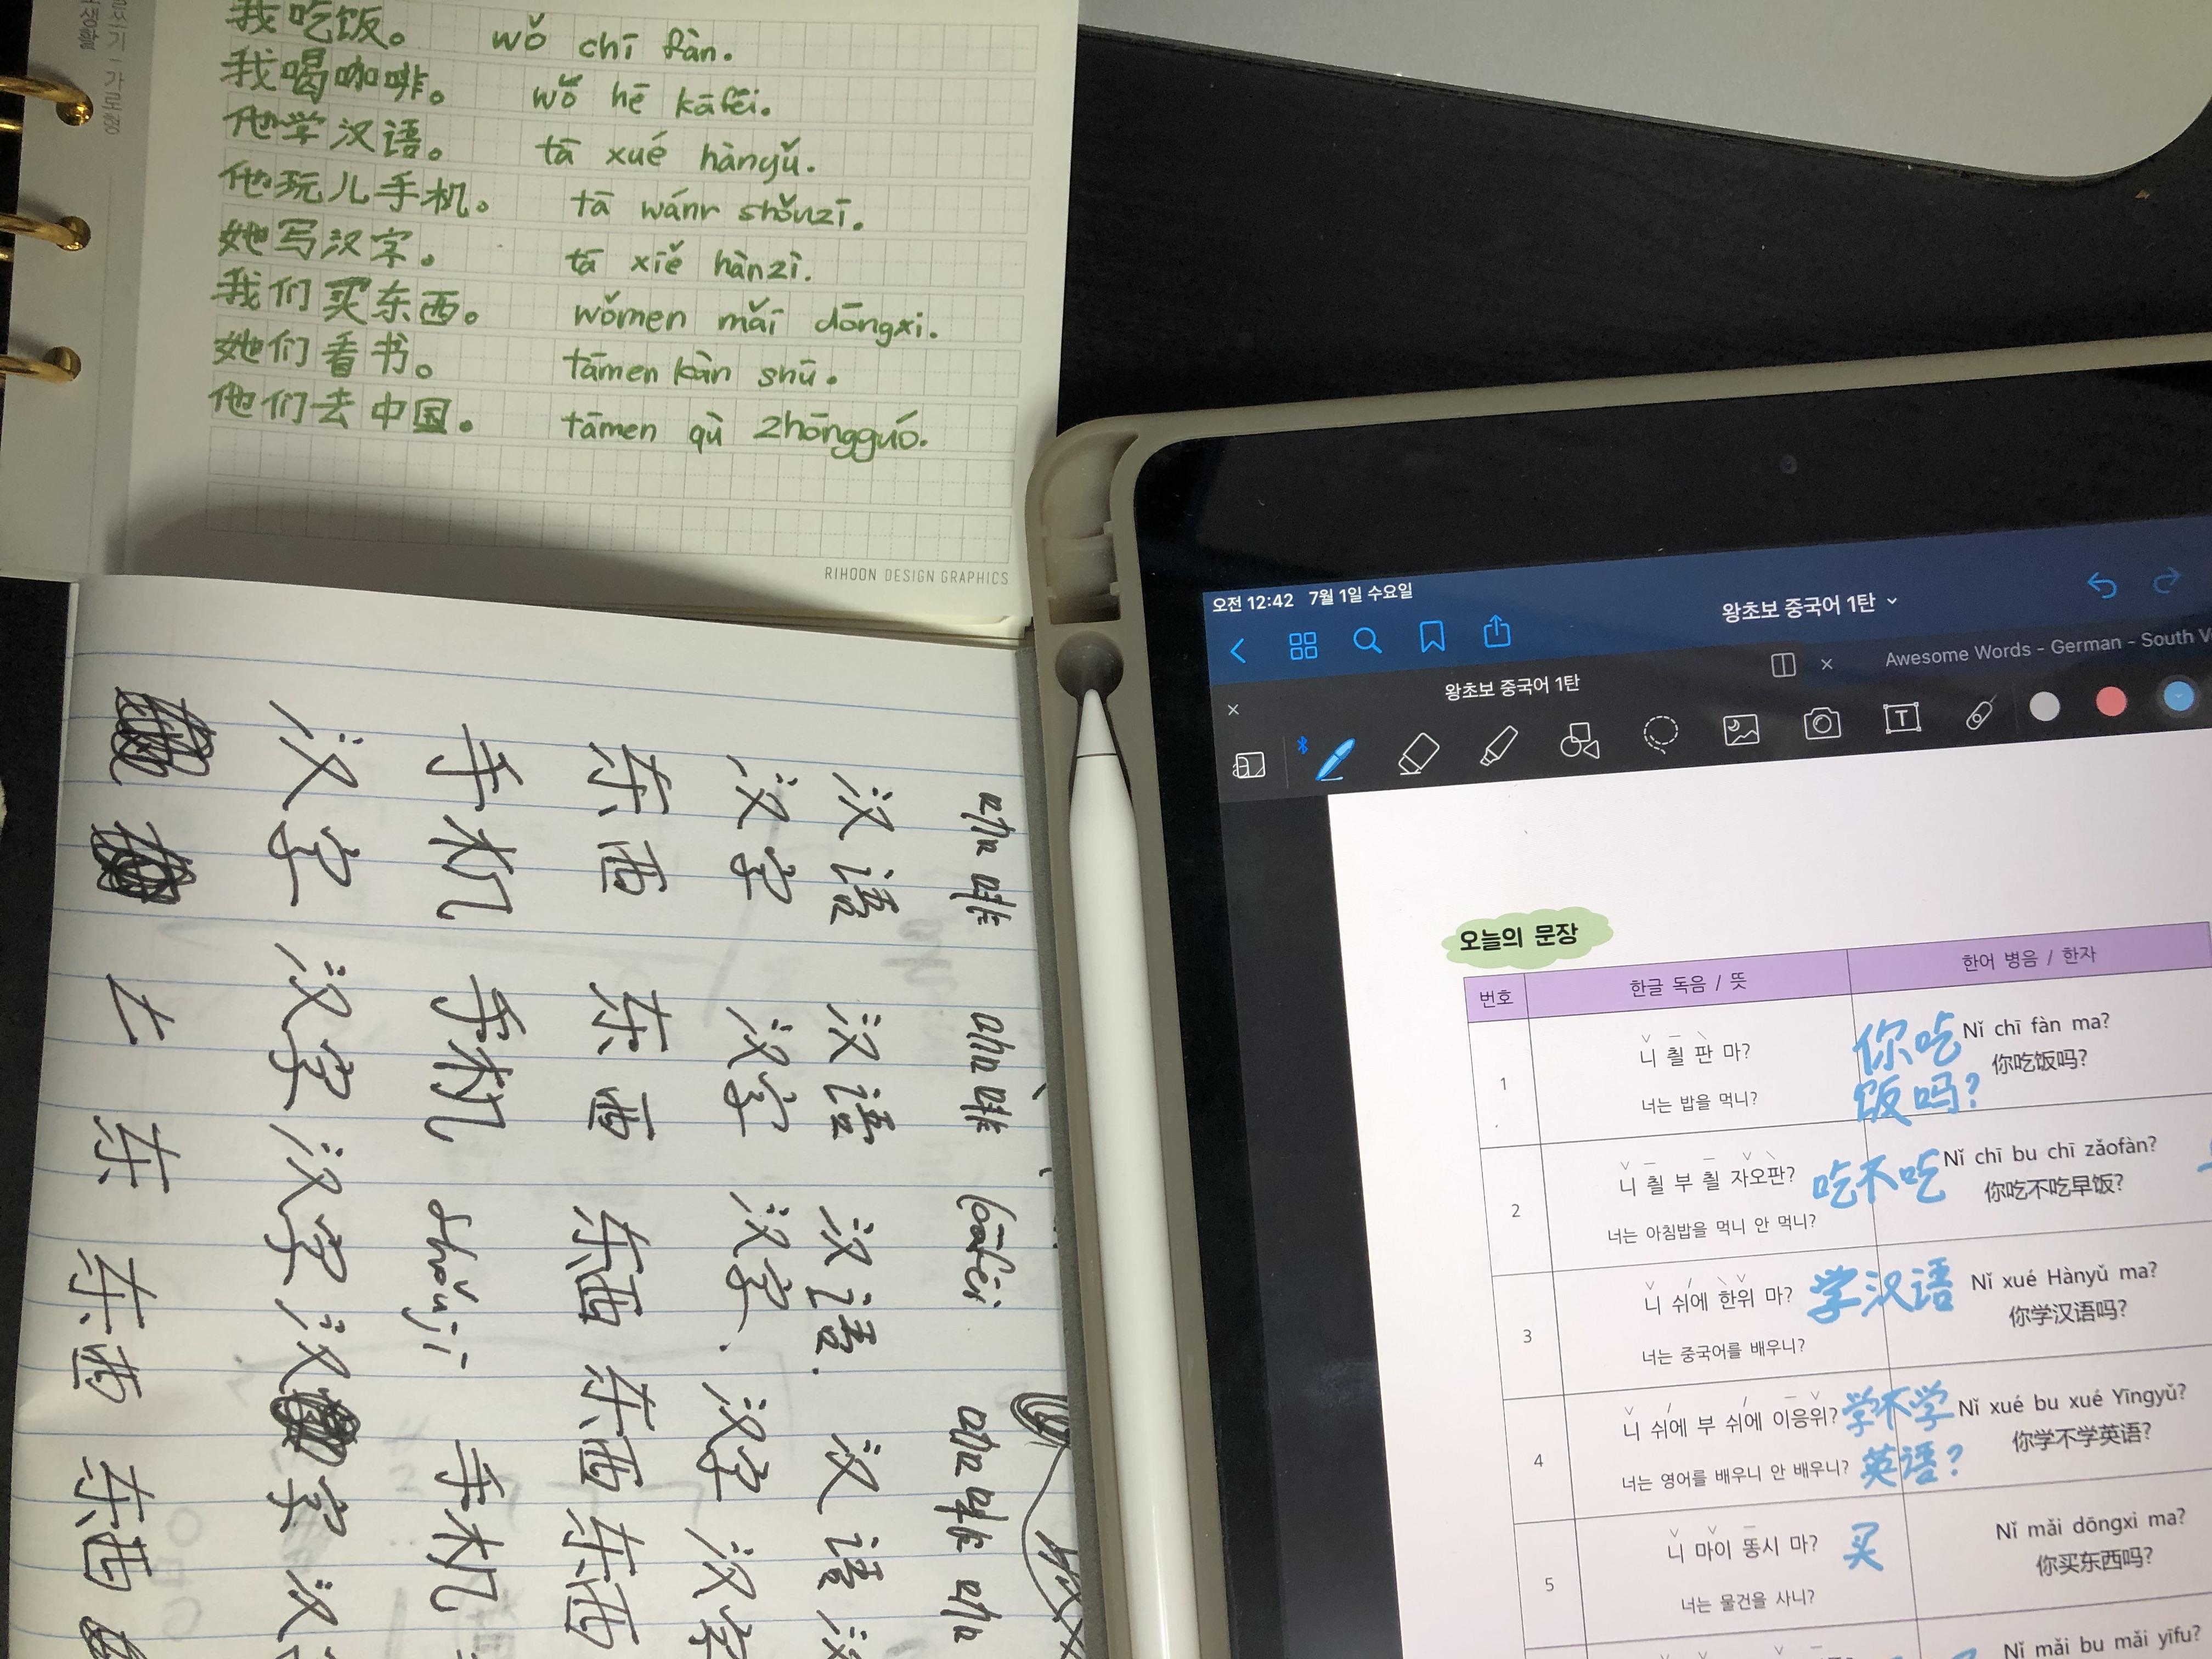 글쓰기 - 가로형
생활
我吃饭。 wǒ chī fàn.
我喝咖啡。 wǒ hē kāfēi.
他学汉语。 tā xué hànyǔ.
他玩儿手机。 tā wánr shǒuzī.
她写汉字。 tā xiě hànzì.
我们买东西。 wǒmen mǎi dōngxi.
她们看书。 tāmen kàn shū.
他们去中国。 tāmen qù zhōngguó.
RIHOON DESIGN GRAPHICS
咖啡 咖啡 kāfēi 咖啡 咖
汉语 汉语 汉语. 汉语 汉
汉字 汉字 汉字. 汉字 汉字
东西 东西 东西 东西 东西
手机 手机 shǒujī 手机
汉字 汉字 汉字 汉 字 汉
东 东西 东西
오전 12:42 7월 1일 수요일
왕초보 중국어 1탄
왕초보 중국어 1탄
Awesome Words - German - South
오늘의 문장
번호 한글 독음 / 뜻 한어 병음 / 한자
1
니 츨 판 마?
너는 밥을 먹니?
你吃
饭吗?
Nǐ chī fàn ma?
你吃饭吗?
2
니 츨 부 츨 자오판?
너는 아침밥을 먹니 안 먹니?
吃不吃
Nǐ chī bu chī zǎofàn?
你吃不吃早饭?
3
니 쉬에 한위 마?
너는 중국어를 배우니?
学汉语
Nǐ xué Hànyǔ ma?
你学汉语吗?
4
니 쉬에 부 쉬에 이응위?
너는 영어를 배우니 안 배우니?
学不学
英语?
Nǐ xué bu xué Yīngyǔ?
你学不学英语?
5
니 마이 똥시 마?
너는 물건을 사니?
买
Nǐ mǎi dōngxi ma?
你买东西吗?
Nǐ mǎi bu mǎi yīfu?